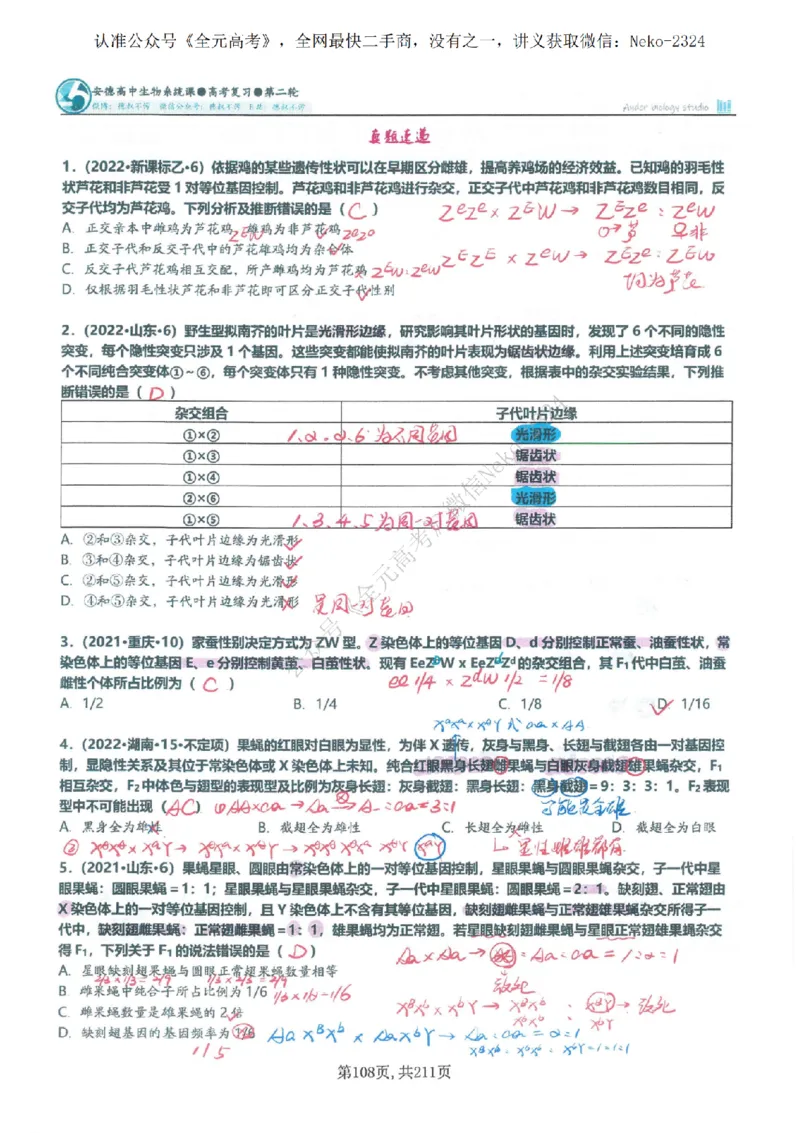 认准公众号《全元高考》，全网最快二手商，没有之一，讲义获取微信：Neko-2324
安德高中生物系统课●高考复习●第二轮
Andor biology studio
真题速递
1.（2022•新课标乙•6）依据鸡的某些遗传性状可以在早期区分雌雄，提高养鸡场的经济效益。已知鸡的羽毛性
状芦花和非芦花受 1 对等位基因控制。芦花鸡和非芦花鸡进行杂交，正交子代中芦花鸡和非芦花鸡数目相同，反
交子代均为芦花鸡。下列分析及推断错误的是（ C ）
A. 正交亲本中雌鸡为芦花鸡，雄鸡为非芦花鸡
B. 正交子代和反交子代中的芦花雄鸡均为杂合体
C. 反交子代芦花鸡相互交配，所产雌鸡均为芦花鸡
D. 仅根据羽毛性状芦花和非芦花即可区分正交子代性别
2.（2022•山东•6）野生型拟南芥的叶片是光滑形边缘，研究影响其叶片形状的基因时，发现了 6 个不同的隐性
突变，每个隐性突变只涉及 1 个基因。这些突变都能使拟南芥的叶片表现为锯齿状边缘。利用上述突变培育成 6
个不同纯合突变体①～⑥，每个突变体只有 1 种隐性突变。不考虑其他突变，根据表中的杂交实验结果，下列推
断错误的是（ D ）
杂交组合 子代叶片边缘
①×② 光滑形
①×③ 锯齿状
①×④ 锯齿状
②×⑥ 光滑形
①×⑤ 1、3、4、5为同一对基因 锯齿状
A. ②和③杂交，子代叶片边缘为光滑形
B. ③和④杂交，子代叶片边缘为锯齿状
C. ②和⑤杂交，子代叶片边缘为光滑形
D. ④和⑤杂交，子代叶片边缘为光滑形 是同一对基因
3.（2021•重庆•10）家蚕性别决定方式为 ZW 型。Z 染色体上的等位基因 D、d 分别控制正常蚕、油蚕性状，常
染色体上的等位基因 E、e 分别控制黄茧、白茧性状。现有 EeZᴰW x EeZᴰZᵈ 的杂交组合，其 F₁ 代中白茧、油蚕
雌性个体所占比例为（ C ）
A. 1/2 B. 1/4 C. 1/8 D. 1/16
4.（2022•湖南•15•不定项）果蝇的红眼对白眼为显性，为伴 X 遗传，灰身与黑身、长翅与截翅各由一对基因控
制，显隐性关系及其位于常染色体或 X 染色体上未知。纯合红眼黑身长翅雌果蝇与白眼灰身截翅雄果蝇杂交，F₁
相互杂交，F₂ 中体色与翅型的表现型及比例为灰身长翅：灰身截翅：黑身长翅：黑身截翅＝9：3：3：1。F₂ 表现
型中不可能出现（ AC ）
A. 黑身全为雄性 B. 截翅全为雄性 C. 长翅全为雌性 D. 截翅全为白眼
5.（2021•山东•6）果蝇星眼、圆眼由常染色体上的一对等位基因控制，星眼果蝇与圆眼果蝇杂交，子一代中星
眼果蝇：圆眼果蝇＝1：1；星眼果蝇与星眼果蝇杂交，子一代中星眼果蝇：圆眼果蝇＝2：1。缺刻翅、正常翅由
X 染色体上的一对等位基因控制，且 Y 染色体上不含有其等位基因，缺刻翅雌果蝇与正常翅雄果蝇杂交所得子一
代中，缺刻翅雌果蝇：正常翅雌果蝇＝1：1，雄果蝇均为正常翅。若星眼缺刻翅雌果蝇与星眼正常翅雄果蝇杂交
得 F₁，下列关于 F₁ 的说法错误的是（ D ）
A. 星眼缺刻翅果蝇与圆眼正常翅果蝇数量相等
B. 雌果蝇中纯合子所占比例为 1/6
C. 雌果蝇数量是雄果蝇的 2 倍
D. 缺刻翅基因的基因频率为 1/6
1/5
第108页，共211页